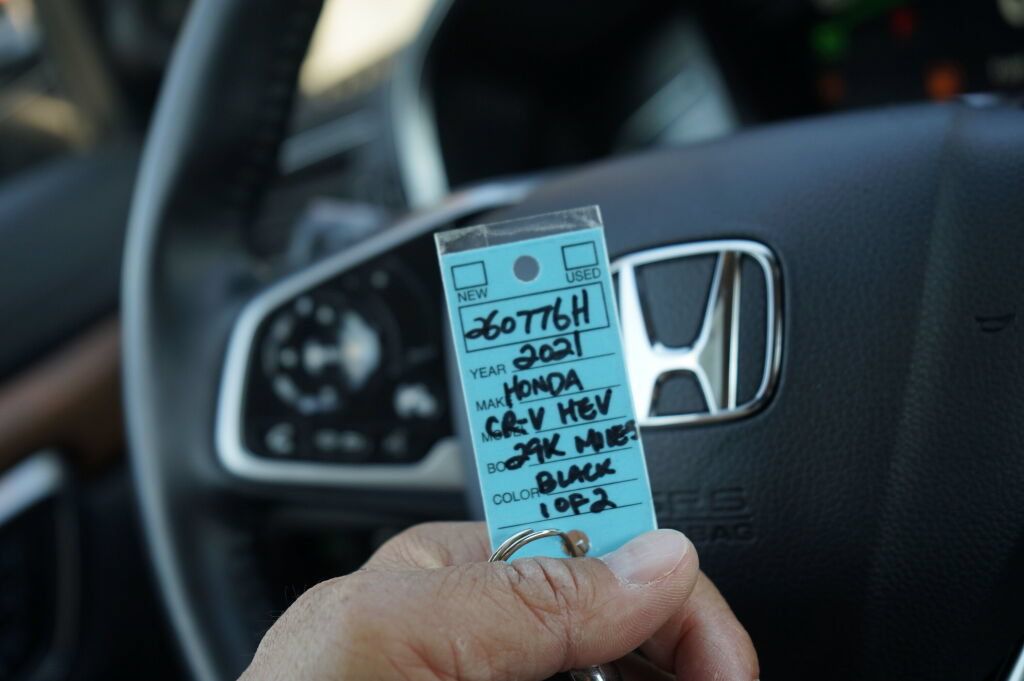 NEW USED
260776H
YEAR 2021
MAK HONDA
CR-V HEV
BO 29K MILES
COLOR BLACK
1 OF 2